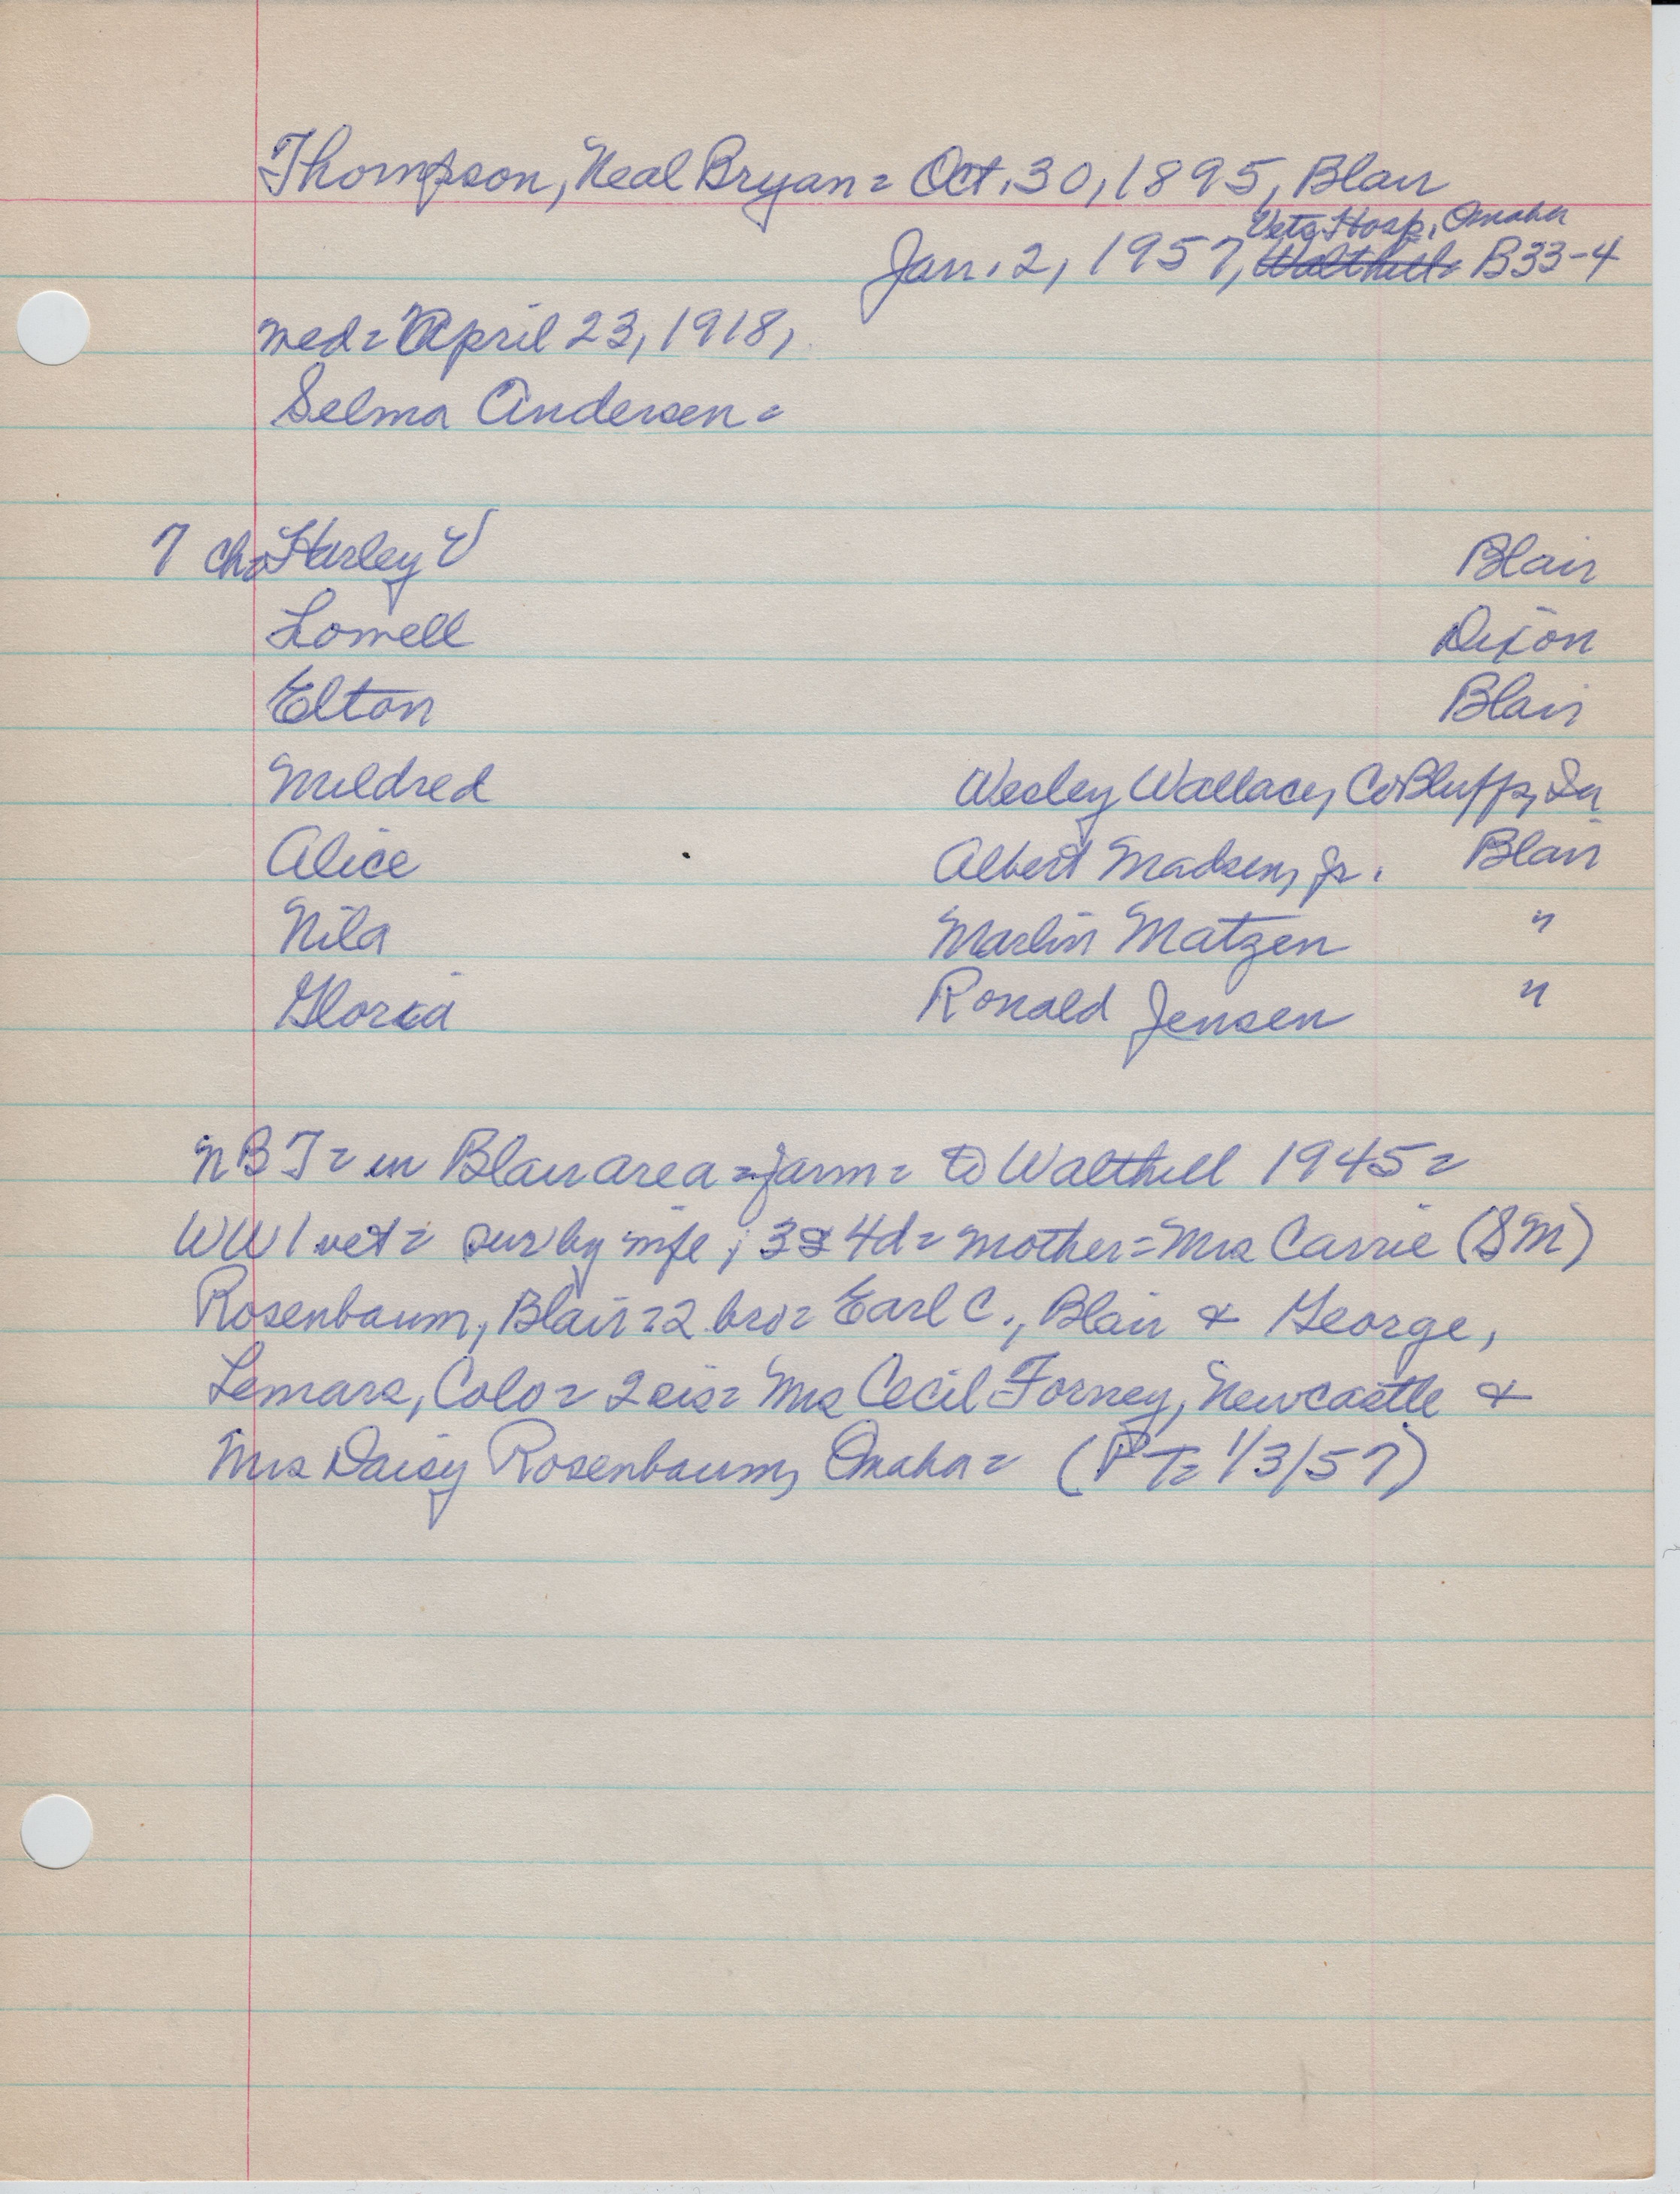 Thompson, Neal Bryan = Oct. 30, 1895, Blair
Vets Hosp, Omaha
Jan. 2, 1957, Walthill = B33-4
med = April 23, 1918,
Selma Andersen =
7 ch = Harley V Blair
Lowell Dixon
Elton Blair
Mildred Wesley Wallace, Co Bluffs, Ia
Alice Albert Madsen, Jr. Blair
Nila Marlin Matzen "
Gloria Ronald Jensen "
NBT = in Blair area = farm = to Walthill 1945 =
WW1 vet = sur by wife; 3s 4d = mother = Mrs Carrie (SM)
Rosenbaum, Blair = 2 bro = Earl C., Blair & George,
Lemars, Colo = 2 sis = Mrs Cecil Forney, Newcastle &
Mrs Daisy Rosenbaum, Omaha = (PT = 1/3/57)